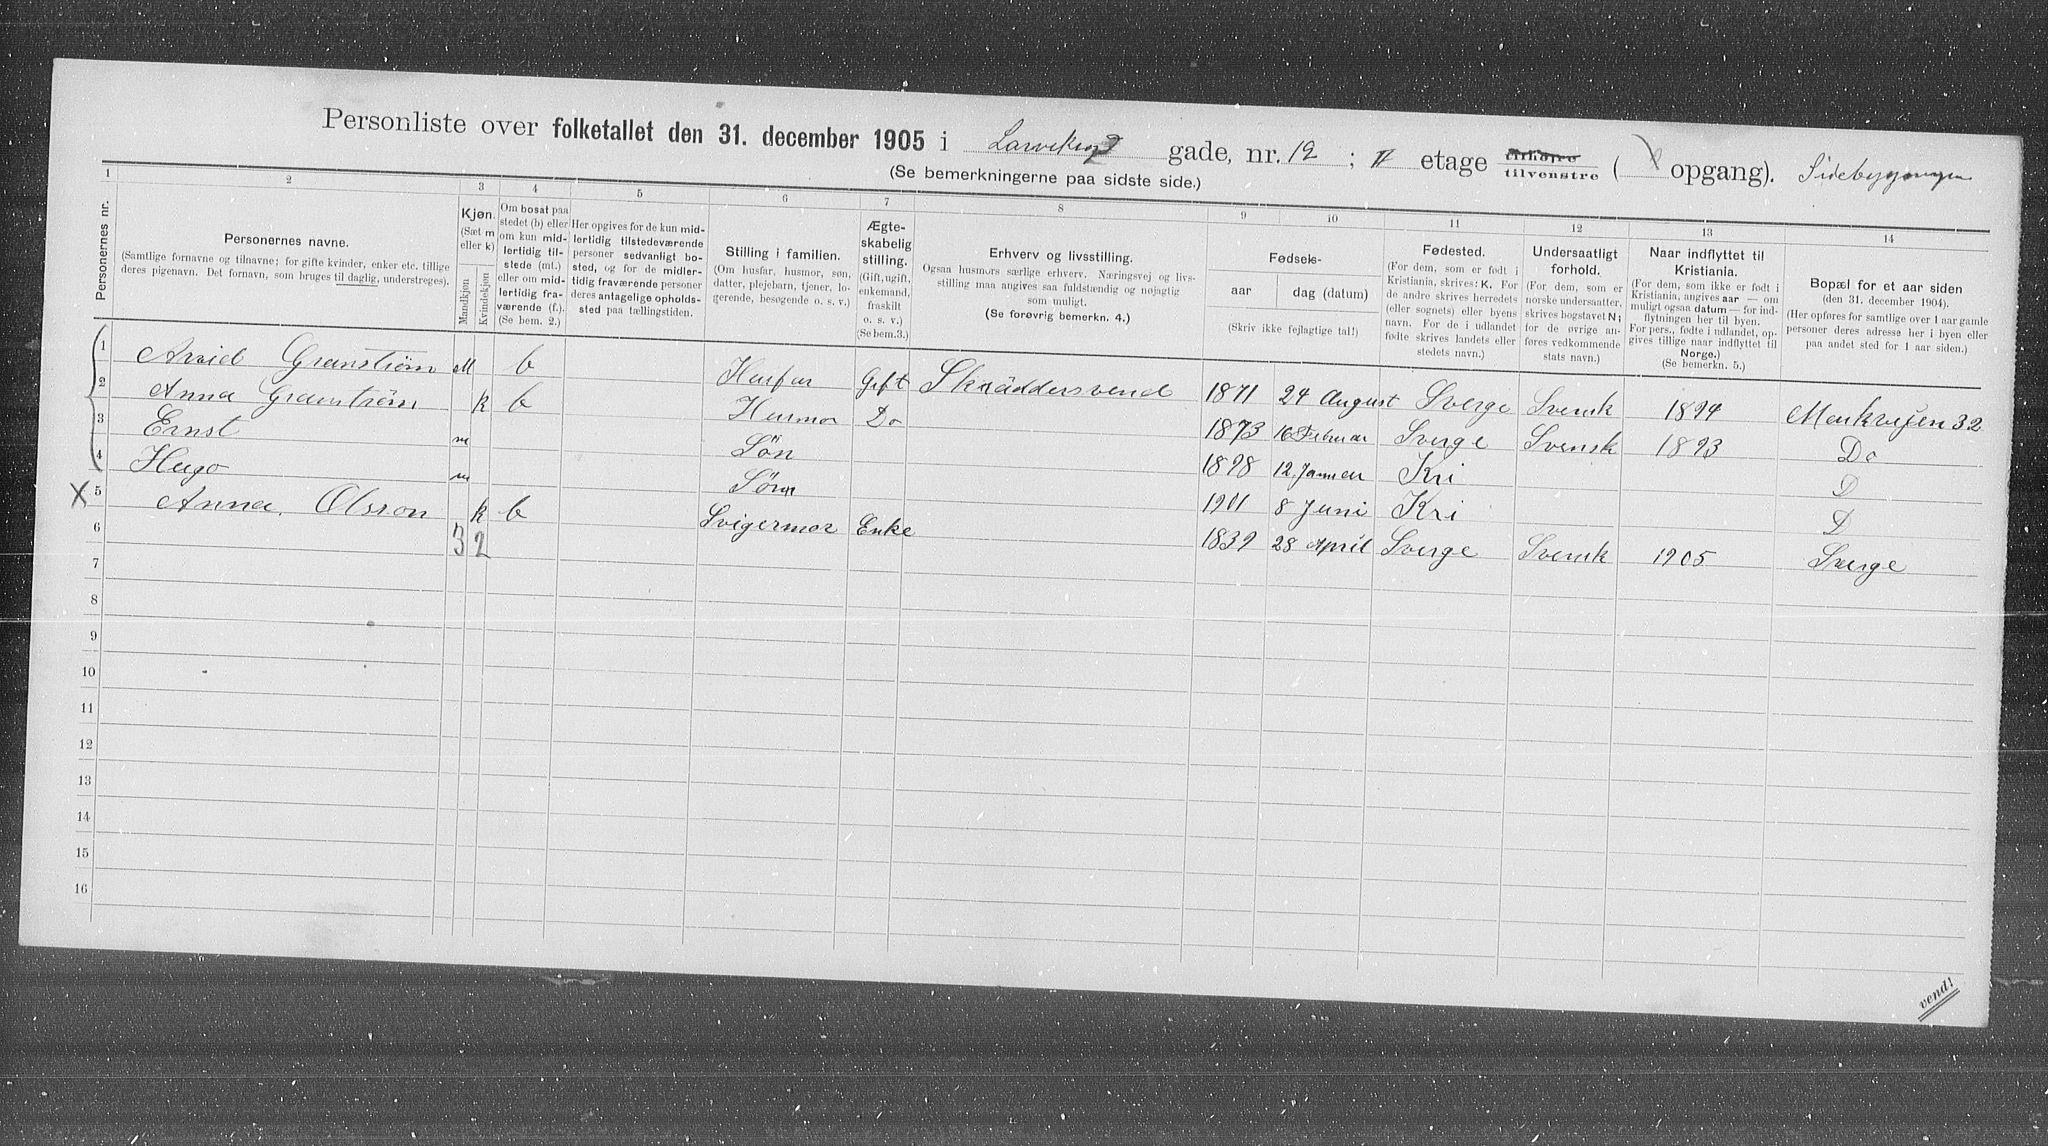 Personliste over folketallet den 31. december 1905 i Larviksgt gade, nr. 12 ; II etage tilhøjre tilvenstre ( opgang). Sidebygningen
(Se bemerkningerne paa sidste side.)
1 2 3 4 5 6 7 8 9 10 11 12 13 14
Personernes nr.
Personernes navne.
(Samtlige fornavne og tilnavne; for gifte kvinder, enker etc. tillige
deres pigenavn. Det fornavn, som bruges til daglig, understreges).
Kjøn.
(Sæt m
eller k)
Mandkjøn
Kvindekjøn
Om bosat paa
stedet (b) eller
om kun mid-
lertidig til-
stede (mt.)
eller om mid-
lertidig fra-
værende (f.).
(Se bem. 2.)
Her opgives for de kun mid-
lertidig tilstedeværende
personer sedvanligt bo-
sted, og for de midler-
tidig fraværende personer
deres antagelige opholds-
sted paa tællingstiden.
Stilling i familien.
(Om husfar, husmor, søn,
datter, plejebarn, tjener, lo-
gerende, besøgende o. s. v.)
Ægte-
skabelig
stilling.
(Gift, ugift,
enkemand,
fraskilt
o. s. v.)
(Se bem. 3.)
Erhverv og livsstilling.
Ogsaa husmors særlige erhverv. Næringsvej og livs-
stilling maa angives saa fuldstændig og nøjagtig
som muligt.
(Se forøvrig bemerkn. 4.)
Fødsels-
aar
dag (datum)
(Skriv ikke fejlagtige tal!)
Fødested.
(For dem, som er født i
Kristiania, skrives: K. For
de andre skrives herredets
(eller sognets) eller byens
navn. For de i udlandet
fødte skrives landets eller
stedets navn.)
Undersaatligt
forhold.
(For dem, som er
norske undersatter,
skrives bogstavet N;
for de øvrige an-
føres vedkommende
stats navn.)
Naar indflyttet til
Kristiania.
(For dem, som ikke er født i
Kristiania, angives aar — om
muligt ogsaa datum — for ind-
flytningen her til byen.
For pers., fødte i udlandet, op-
gives tillige naar indflyttet til
Norge.)
(Se bemerkn. 5.)
Bopæl for et aar siden
(den 31. december 1904).
(Her opføres for samtlige over 1 aar gamle
personer deres adresse her i byen eller
paa andet sted for 1 aar siden.)
1 Arvid Granström M b Husfar Gift Skräddersvend 1871 24 August Sverge Svensk 1894 Markvejen 32
2 Anna Granström k b Husmor Do 1873 16 Februar Sverge Svensk 1893 Do
3 Ernst m Søn 1898 12 Januar Kri D
4 Hugo m Søn 1901 8 Juni Kri D
X 5 Anna Olsson k b Svigermor Enke 1839 28 April Sverge Svensk 1905 Sverge
6 3 2
7
8
9
10
11
12
13
14
15
16
vend!